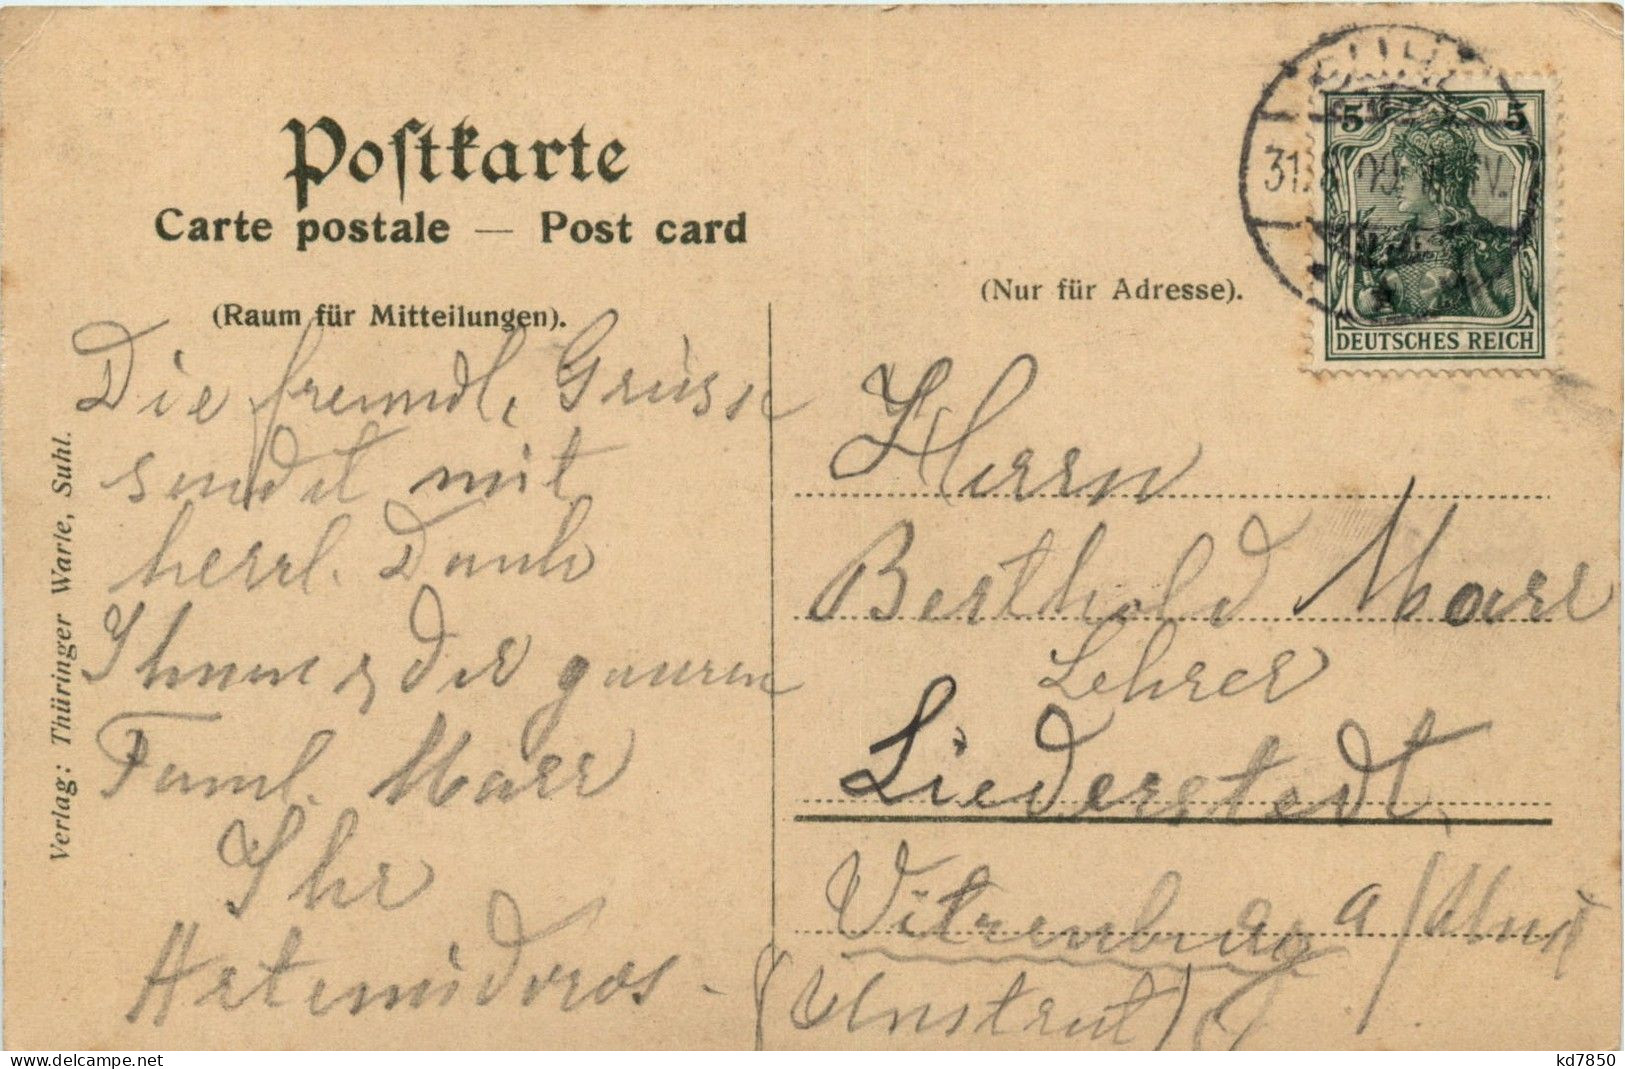 Postkarte
Carte postale — Post card
(Raum für Mitteilungen).
(Nur für Adresse).
5 5
DEUTSCHES REICH
SUHL
31.8.09.
Verlag: Thüringer Warte, Suhl.
Die freundl. Grüsse
sendet mit
herzl. Dank
Ihnen & der ganzen
Faml. Marr
Ihr
Artemidoros -
Herrn
Berthold Marr
Lehrer
Liederstedt
Vitzenburg a/Unst
(Unstrut)
kd7850